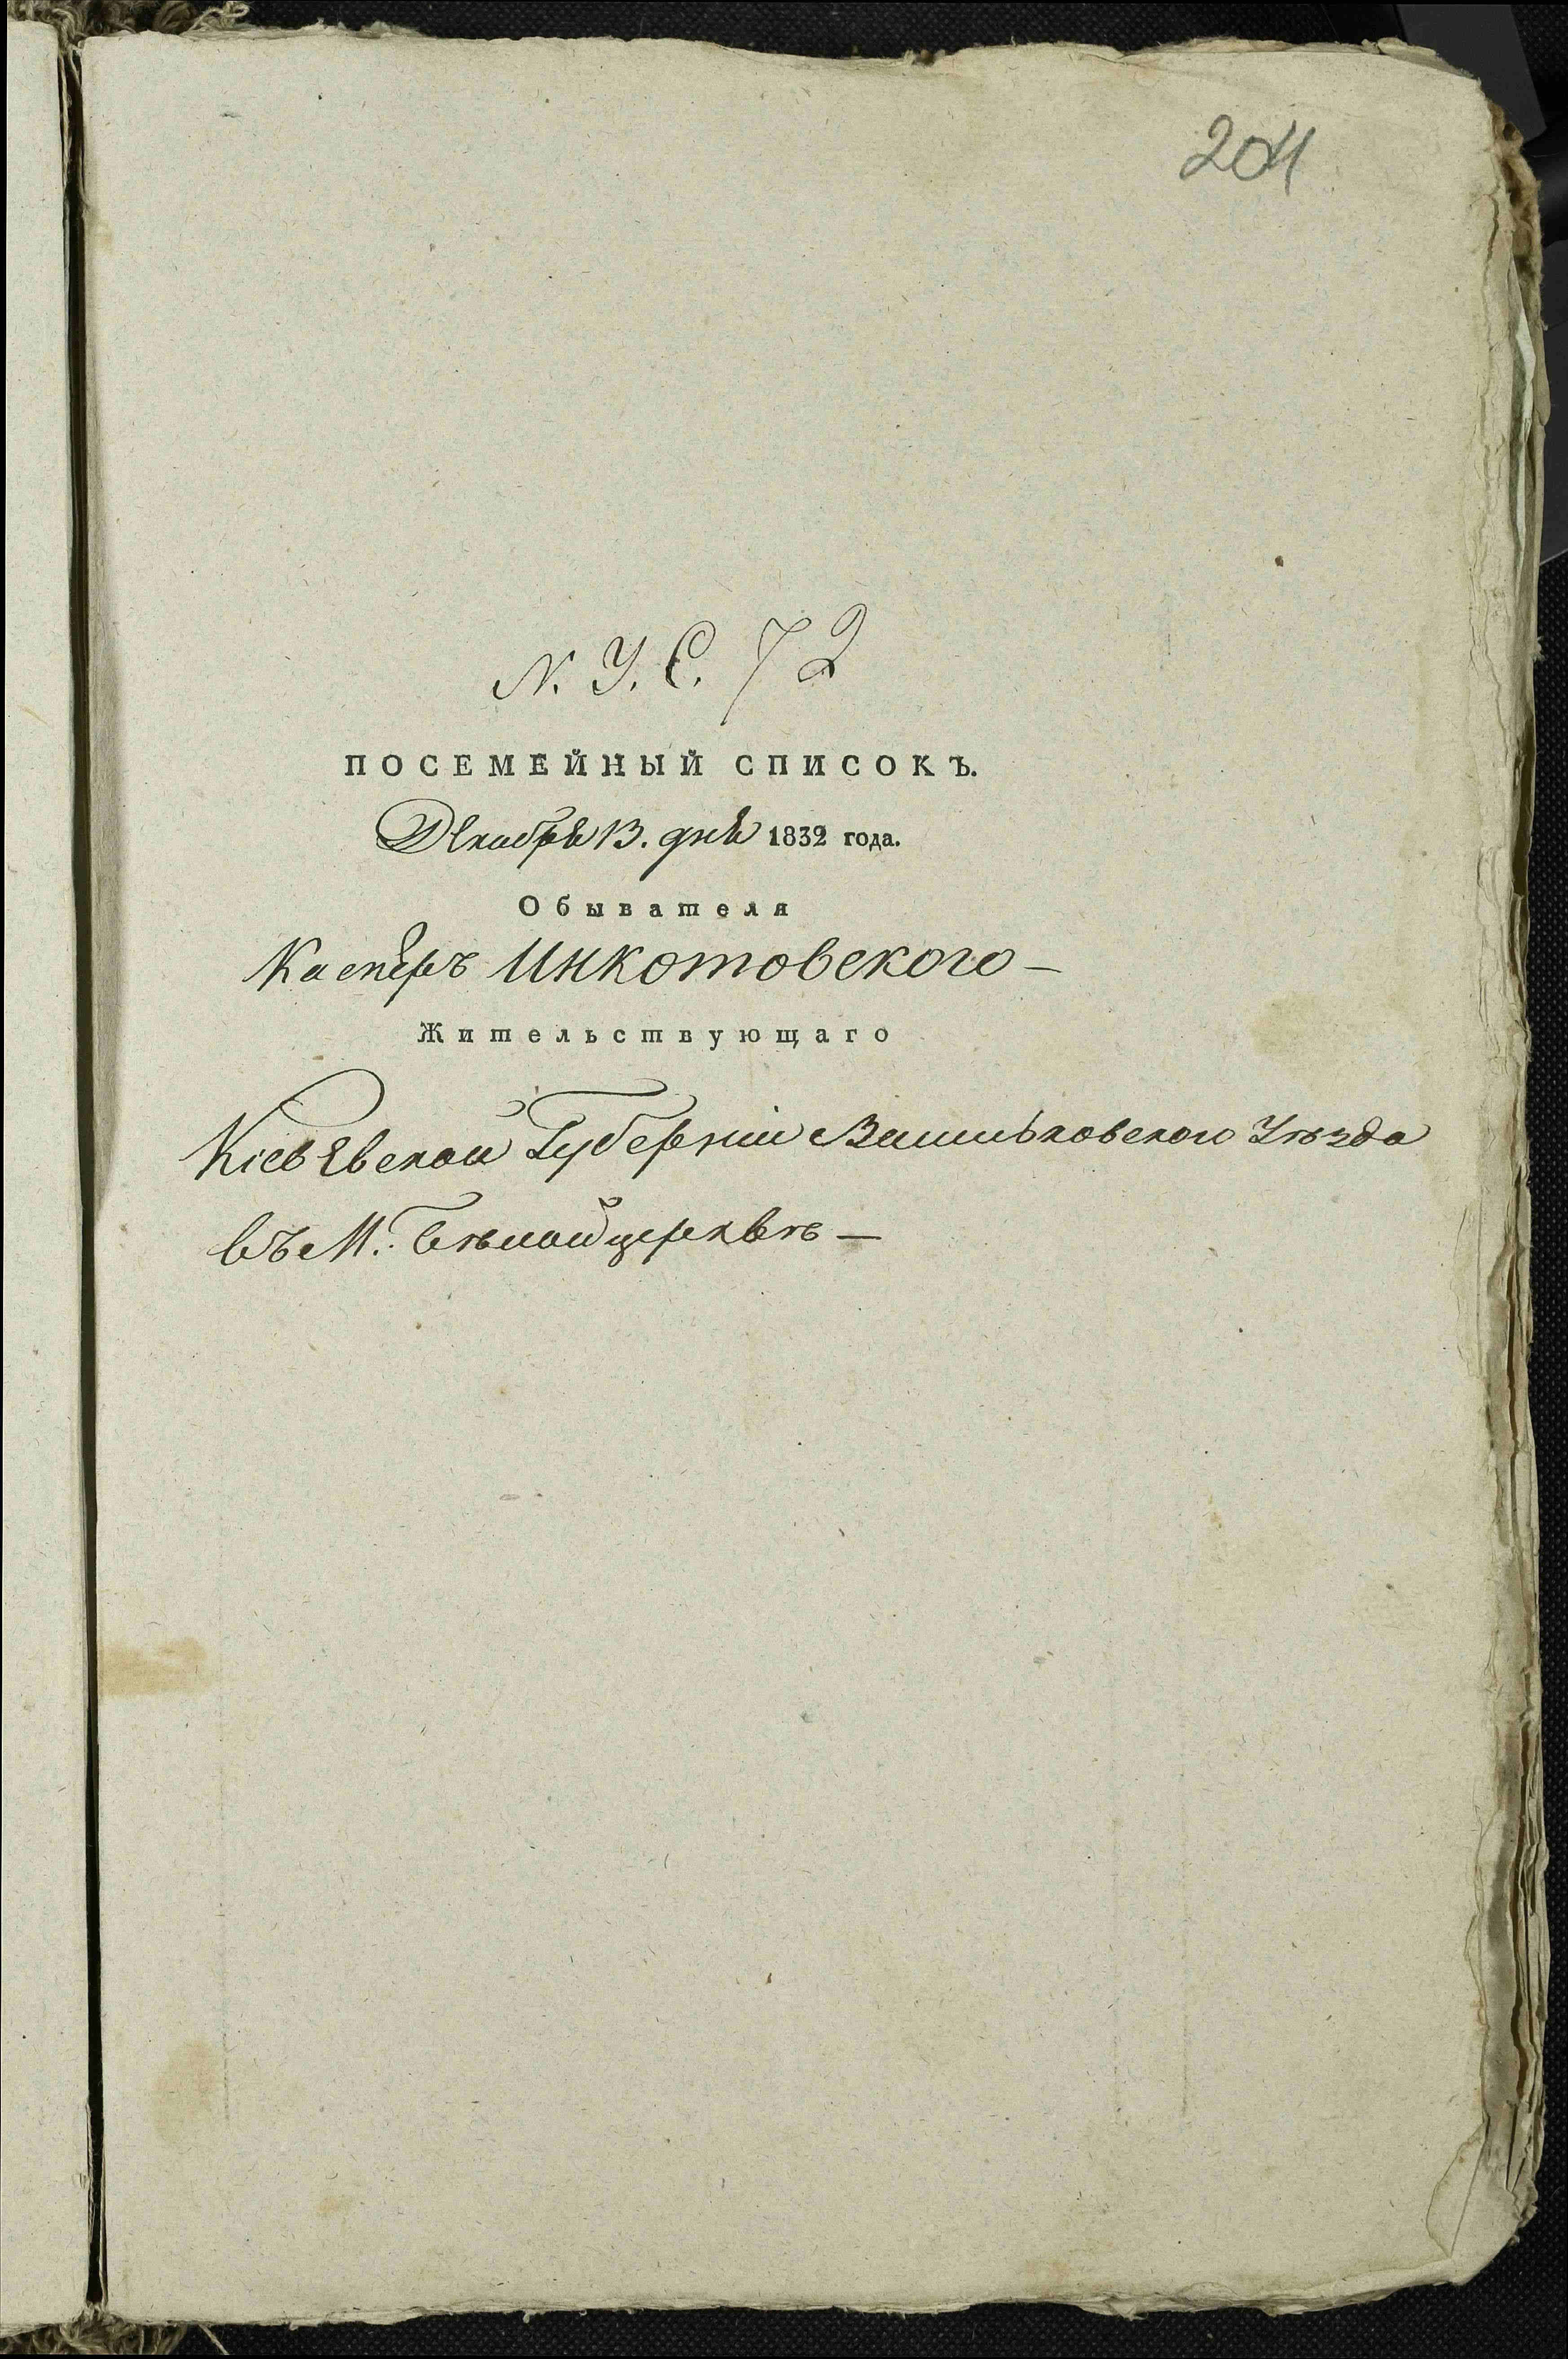 204
N. У. С. 72
ПОСЕМЕЙНЫЙ СПИСОКЪ.
Декабря 13. дня 1832 года.
Обывателя
Касперъ Инкотовского —
Жительствующаго
Кіевъевской Губерніи Васильковского Уѣзда
въ М. Бѣлойцерквѣ —